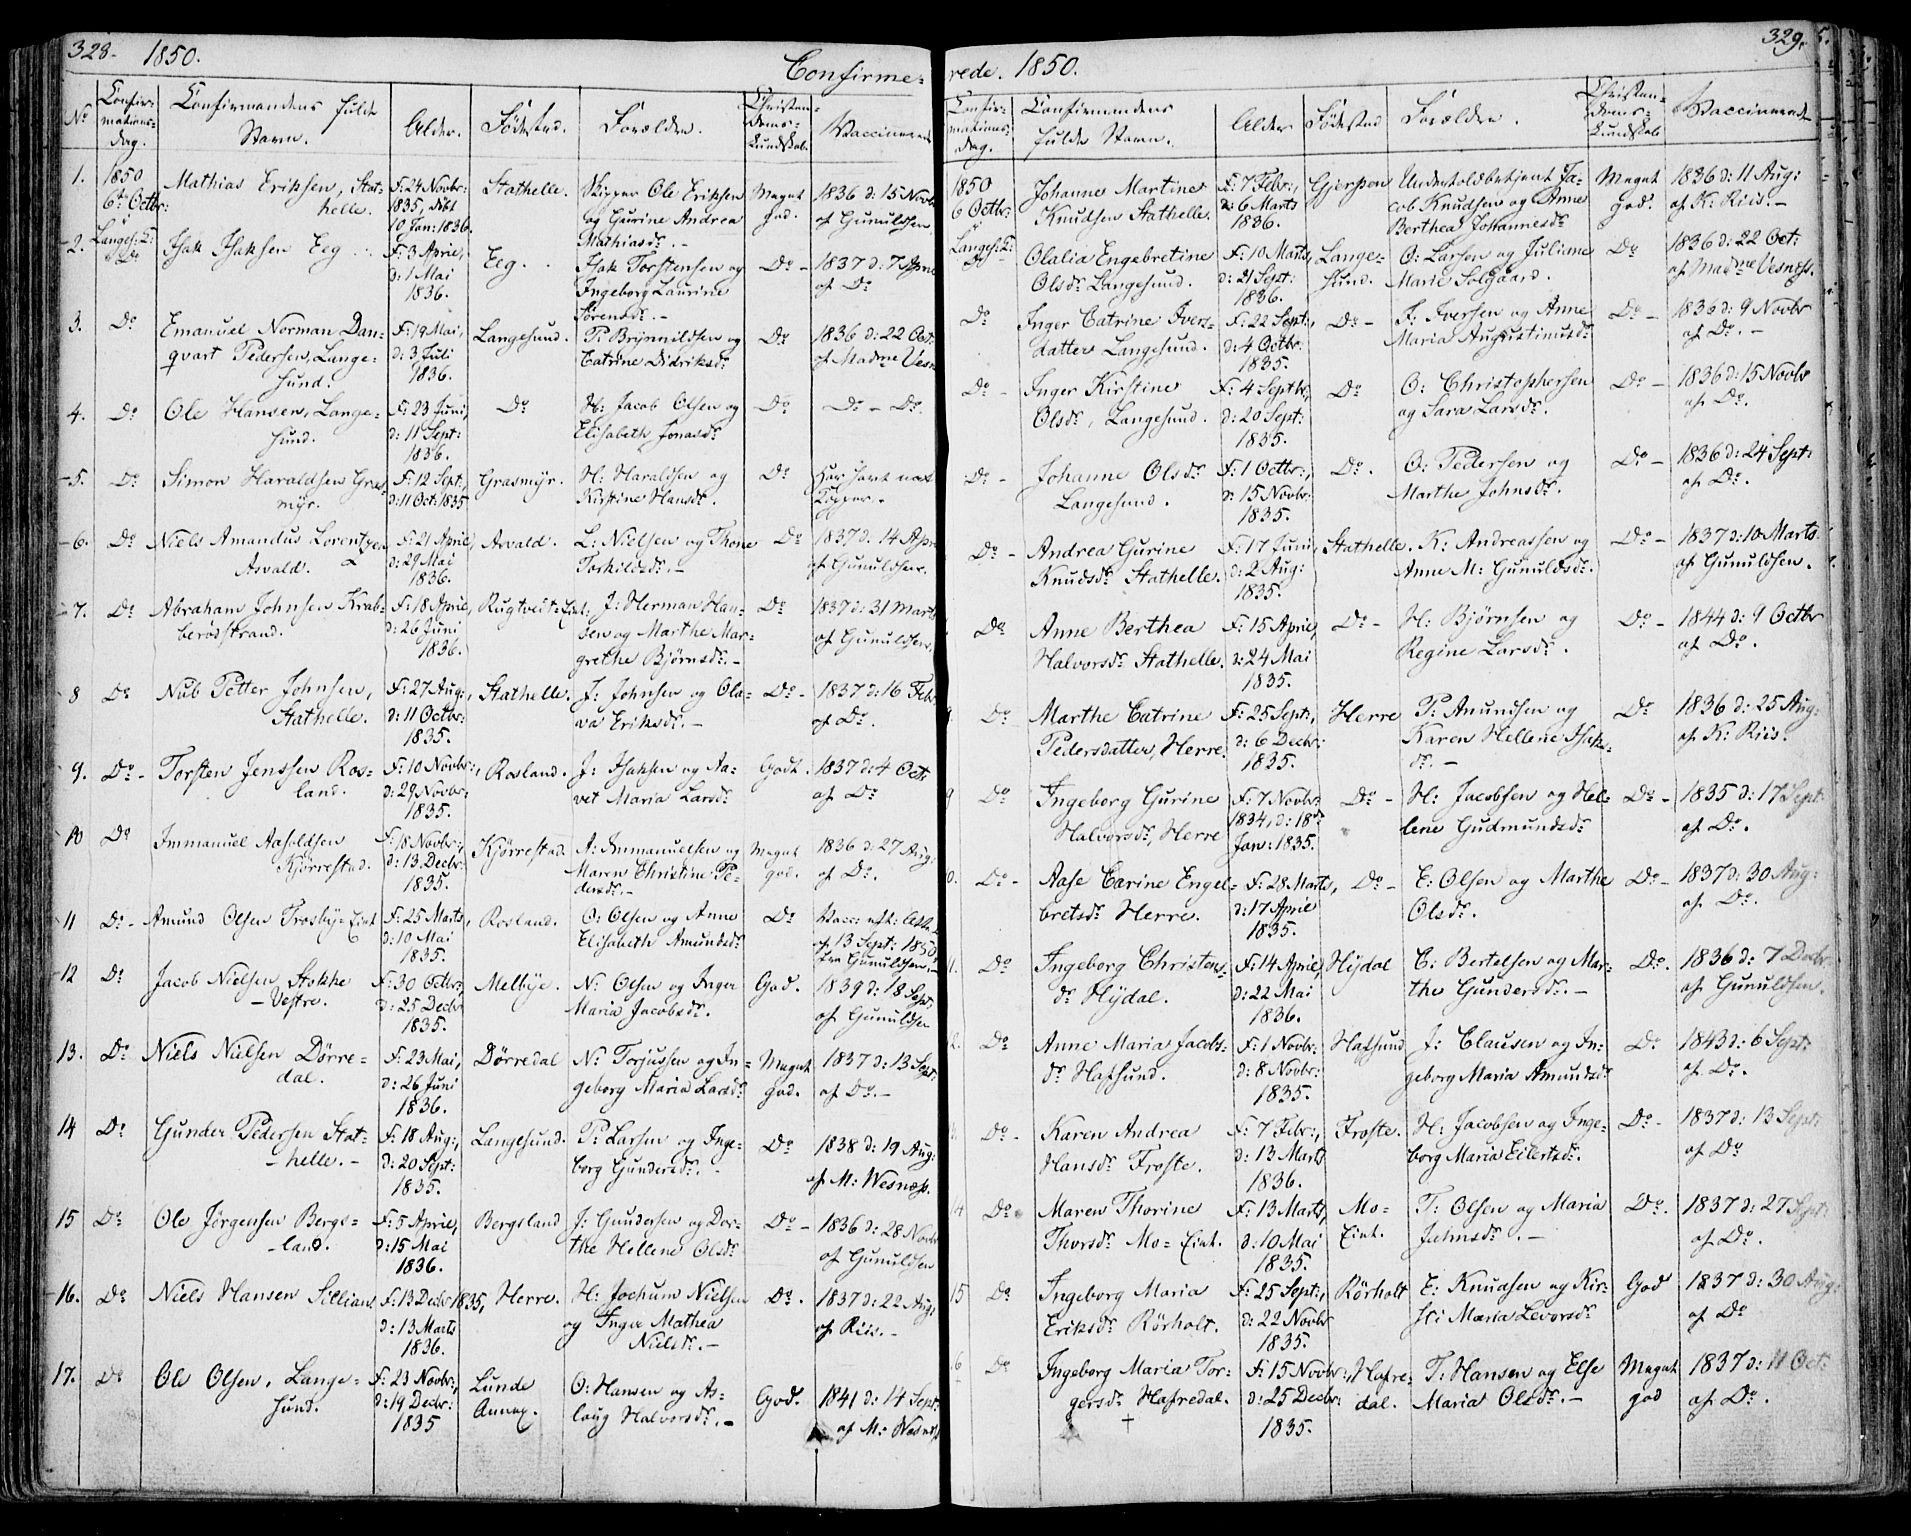 328. 1850. Confirme-
No
Confir-
mations-
dag.
Confirmandens fulde
Navn.
Alder.
Födested.
Forældre.
Christen-
doms-
kundskab.
Vaccinerede
1. 1850 6te Octbr: Langes: K: Mathias Eriksen, Stat-
helle. F: 24 Novbr: 1835, döbt 10 Jan: 1836. Stathelle. Skipper Ole Eriksen og Gurine Andrea Mathiasdr. Meget god. 1836 d: 15 Novbr af Gunuldsen.
2. Do Isak Isaksen Eeg F: 3 April, d: 1 Mai 1836. Eeg. Isak Torstensen og Ingeborg Laurine Sörensdr. Do 1837 d: 7 April af Do
3. Do Emanuel Norman Dan-
qvart Pedersen, Lange-
sund. F: 19 Mai, d: 3 Juli 1836. Langesund. P: Brynnildsen og Catrine Didriksdr Do 1836 d: 22 Oct: af Madme Vesn
4. Do Ole Hansen, Lange-
sund. F: 23 Juni, d: 11 Sept: 1836. Do H: Jacob Olsen og Elisabeth Jonasdr Do Do - Do.
5. Do Simon Haraldsen Gras-
myr. F: 12 Sept:, d: 11 Oct: 1835 Grasmyr. H: Haraldsen og Kirstine Hansdr. Do Har havt nat: Kopper.
6. Do Niels Amandus Lorentzen
Asvald. F: 21 April, d: 29 Mai 1836. Asvald. L: Nielsen og Thone Torkildsdr. Do 1837 d: 14 Apr af Gunuldsen.
7. Do Abraham Johnsen Krab-
berødstrand. F: 18 April, d: 26 Juni 1836. Rugtveit-Eiet: J: Herman Han-
sen og Marthe Mar-
grethe Bjørnsdr. Do 1837 d: 31 Marts af Gunuldsen.
8 Do Nub Petter Johnsen,
Stathelle. F: 27 Aug:, d: 11 Octbr: 1835. Stathelle. J: Johnsen og Ola-
va Eriksdr. Do 1837 d: 16 Febr af Do.
9. Do Torsten Jenssen Ros-
land. F: 10 Novbr:, d: 29 Novbr: 1835. Rosland. J: Isaksen og Aa-
vet Maria Larsdr Godt. 1837 d: 4 Oct: af Do
10 Do Immanuel Aasoldsen
Kjörrestad. F: 18 Novbr:, d: 13 Decbr: 1835. Kjörrestad. A: Immanuelsen og Maren Christine Pe-
dersdr. Meget god. 1836 d: 27 Aug. af Do.
11 Do Amund Olsen Trosby-Eiet F: 25 Marts, d: 10 Mai 1835. Rosland. O: Olsen og Anne Elisabeth Amundsdr Do Vacc: eft: Att. af 13 Sept: 1850 fra Gunuldsen.
12 Do Jacob Nielsen Stokke
Vestre. F: 30 Octbr:, d: 25 Decbr 1835. Melbye. N: Olsen og Inger Maria Jacobsdr. God. 1839 d: 18 Sept: af Gunuldsen
13. Do Niels Nielsen Dörre-
dal. F: 23 Mai, d: 26 Juni 1836. Dörredal N: Torjussen og In-
geborg Maria Larsdr Meget god. 1837 d: 13 Sept: af Do.
14 Do Gunder Pedersen Stat-
helle. F: 18 Aug:, d: 20 Sept: 1835. Langesund. P: Larsen og Inge-
borg Gundersdr. Do 1838 d: 19 Aug: af M: Wesnæs.
15 Do Ole Jörgensen Bergs-
land. F: 5 April, d: 15 Mai 1836. Bergsland J: Gundersen og Dor-
the Hellene Olsdr Do 1836 d: 28 Novbr af Gunuldsen
16. Do Niels Hansen Sillian F: 13 Decbr 1835, d: 13 Marts 1836. Herre. H: Jochum Nielsen og Inger Mathea Nielsdr. Do. 1837 d: 22 Aug: af Riis.
17. Do Ole Olsen, Lange-
sund. F: 23 Novbr:, d: 19 Decbr: 1835 Lunde Annex. O: Hansen og As-
laug Halvorsdr. God. 1841 d: 14 Sept: af M: Wesnæs
rede. 1850. 329.
Confir-
mations-
dag.
Confirmandens
fulde Navn.
Alder
Födested
Forældre.
Christen-
doms-
kundskab
Vaccinerede
1850 6 Octbr: Langes: K: Johanne Martine
Knudsen Stathelle. F: 7 Febr:, d: 6 Marts 1836. Gjerpen Underholdsbetjent Ja-
cob Knudsen og Anne Berthea Johannesdr Meget god. 1836 d: 11 Aug: af K: Riis.
Do Olalia Engebretine
Olsdr Langesund. F: 10 Marts, d: 21 Sept: 1836. Lange-
sund. O: Larsen og Juliane Marie Solgaard. Do 1836 d: 22 Oct: af Madme Vesnæs.
Do Inger Catrine Ivers-
datter Langesund. F: 22 Sept:, d: 4 Octbr: 1835. Do J: Iversen og Anne Maria Augustinusdr Do 1836 d: 9 Novbr af Do.
Do Inger Kirstine
Olsdr, Langesund. F: 4 Septbr, d: 20 Sept: 1835. Do O: Christophersen og Sara Larsdr. Do 1836 d: 15 Novbr af Do.
Do Johanne Olsdr
Langesund. F: 1 Octbr:, d: 15 Novbr: 1835. Do. O: Pedersen og Marthe Johnsdr. Do 1836 d: 24 Sept: af Do.
Do Andrea Gurine
Knudsdr Stathelle. F: 17 Juni, d: 2 Aug: 1835. Stathelle. K: Andreassen og Anne M: Gunuldsdr. Do 1837 d: 10 Marts af Gunuldsen.
Do Anne Berthea
Halvorsdr Stathelle. F: 15 April, d: 24 Mai 1835. Do H: Bjørnsen og Regine Larsdr. Do 1844 d: 9 Octbr af Do.
Do Marthe Catrine
Pedersdatter, Herre. F: 25 Sept:, d: 6 Decbr: 1835. Herre P: Amundsen og Karen Hellene Isaks-
dr. Do 1836 d: 25 Aug: af K: Riis.
9 Do Ingeborg Gurine
Halvorsdr, Herre F: 7 Novbr: 1834, d: 18de Jan: 1835. Do H: Jacobsen og Hel-
lene Gudmundsdr Do 1835 d: 17 Sept: af Do.
0. Do Aase Carine Engel-
bretsdr Herre. F: 28 Marts, d: 17 April 1835. Do E: Olsen og Marthe Olsdr. Do 1837 d: 30 Aug: af Do.
1. Do Ingeborg Christens-
dr Hydal. F: 14 April, d: 22 Mai 1836. Hydal C: Bertelsen og Mar-
the Gundersdr. Do. 1836 d: 7 Decbr. af Gunuldsen.
2. Do Anne Maria Jacobs-
dr Hafsund. F: 1 Novbr: d: 8 Novbr: 1835. Hafsund J: Clausen og In-
geborg Maria Amundsdr Do 1843 d: 6 Sept: af Do.
3. Do Karen Andrea
Hansdr Froste. F: 7 Febr:, d: 13 Marts 1836. Froste. H: Jacobsen og Inge-
borg Maria Eilertsdr. Do 1837 d: 13 Sept: af Do
14 Do Maren Thorine
Thorsdr Mo-Eiet. F: 13 Marts, d: 10 Mai 1835. Mo-
Eiet. T: Olsen og Maria Johnsdr. Do. 1837 d: 27 Sept: af Do.
15 Do Ingeborg Maria
Eriksdr Rörholt. F: 25 Sept:, d: 22 Novbr 1835. Rörholt E: Knudsen og Kir-
sti Maria Levorsdr God 1837 d: 30 Aug: af Do
16 Do Ingeborg Maria Tor-
gersdr Hafredal. F: 15 Novbr:, d: 25 Decbr: 1835. Hafre-
dal. T: Hansen og Else Maria Olsdr. Meget god 1837 d: 11 Oct: af Do.